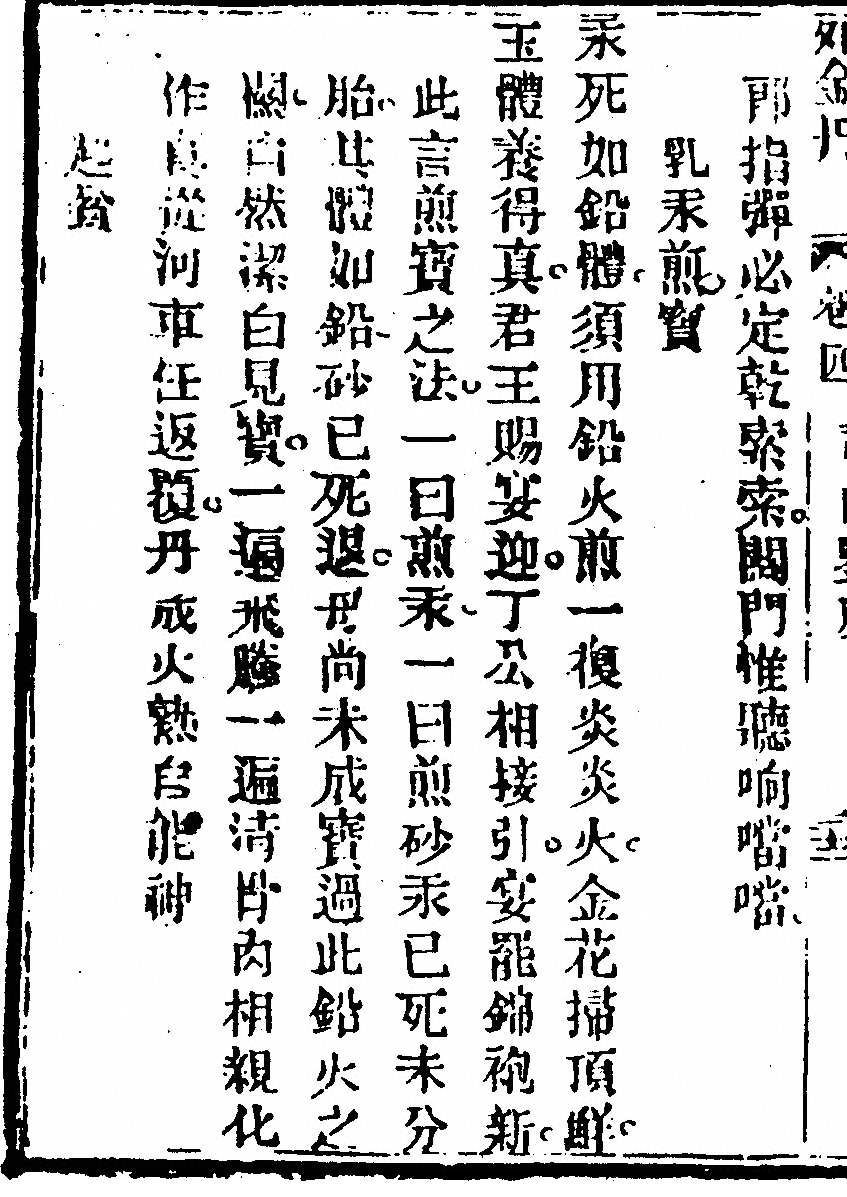 卷四
即指彈必定乾索索闔門惟聽响噹噹
乳汞煎寶
汞死如鉛體須用鉛火煎一復炎炎火金花掃頂鮮
玉體養得真君王賜宴迎丁公相接引宴罷錦袍新
此言煎寶之法一曰煎汞一曰煎砂汞已死未分
胎其體如鉛砂已死退母尚未成寶過此鉛火之
關自然潔白見寶一遍飛騰一遍清骨肉相親化
作真從河車任返顛丹成火熟自能神
起貧